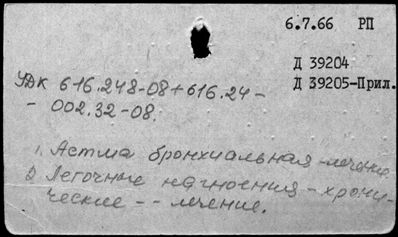 6.7.66 РП
Д 39204
Д 39205-Прил.
УДК 616.248-08+616.24-
- 002.32-08.
1. Астма бронхиальная - лечение.
2. Легочные нагноения - хрони-
ческие - - лечение.